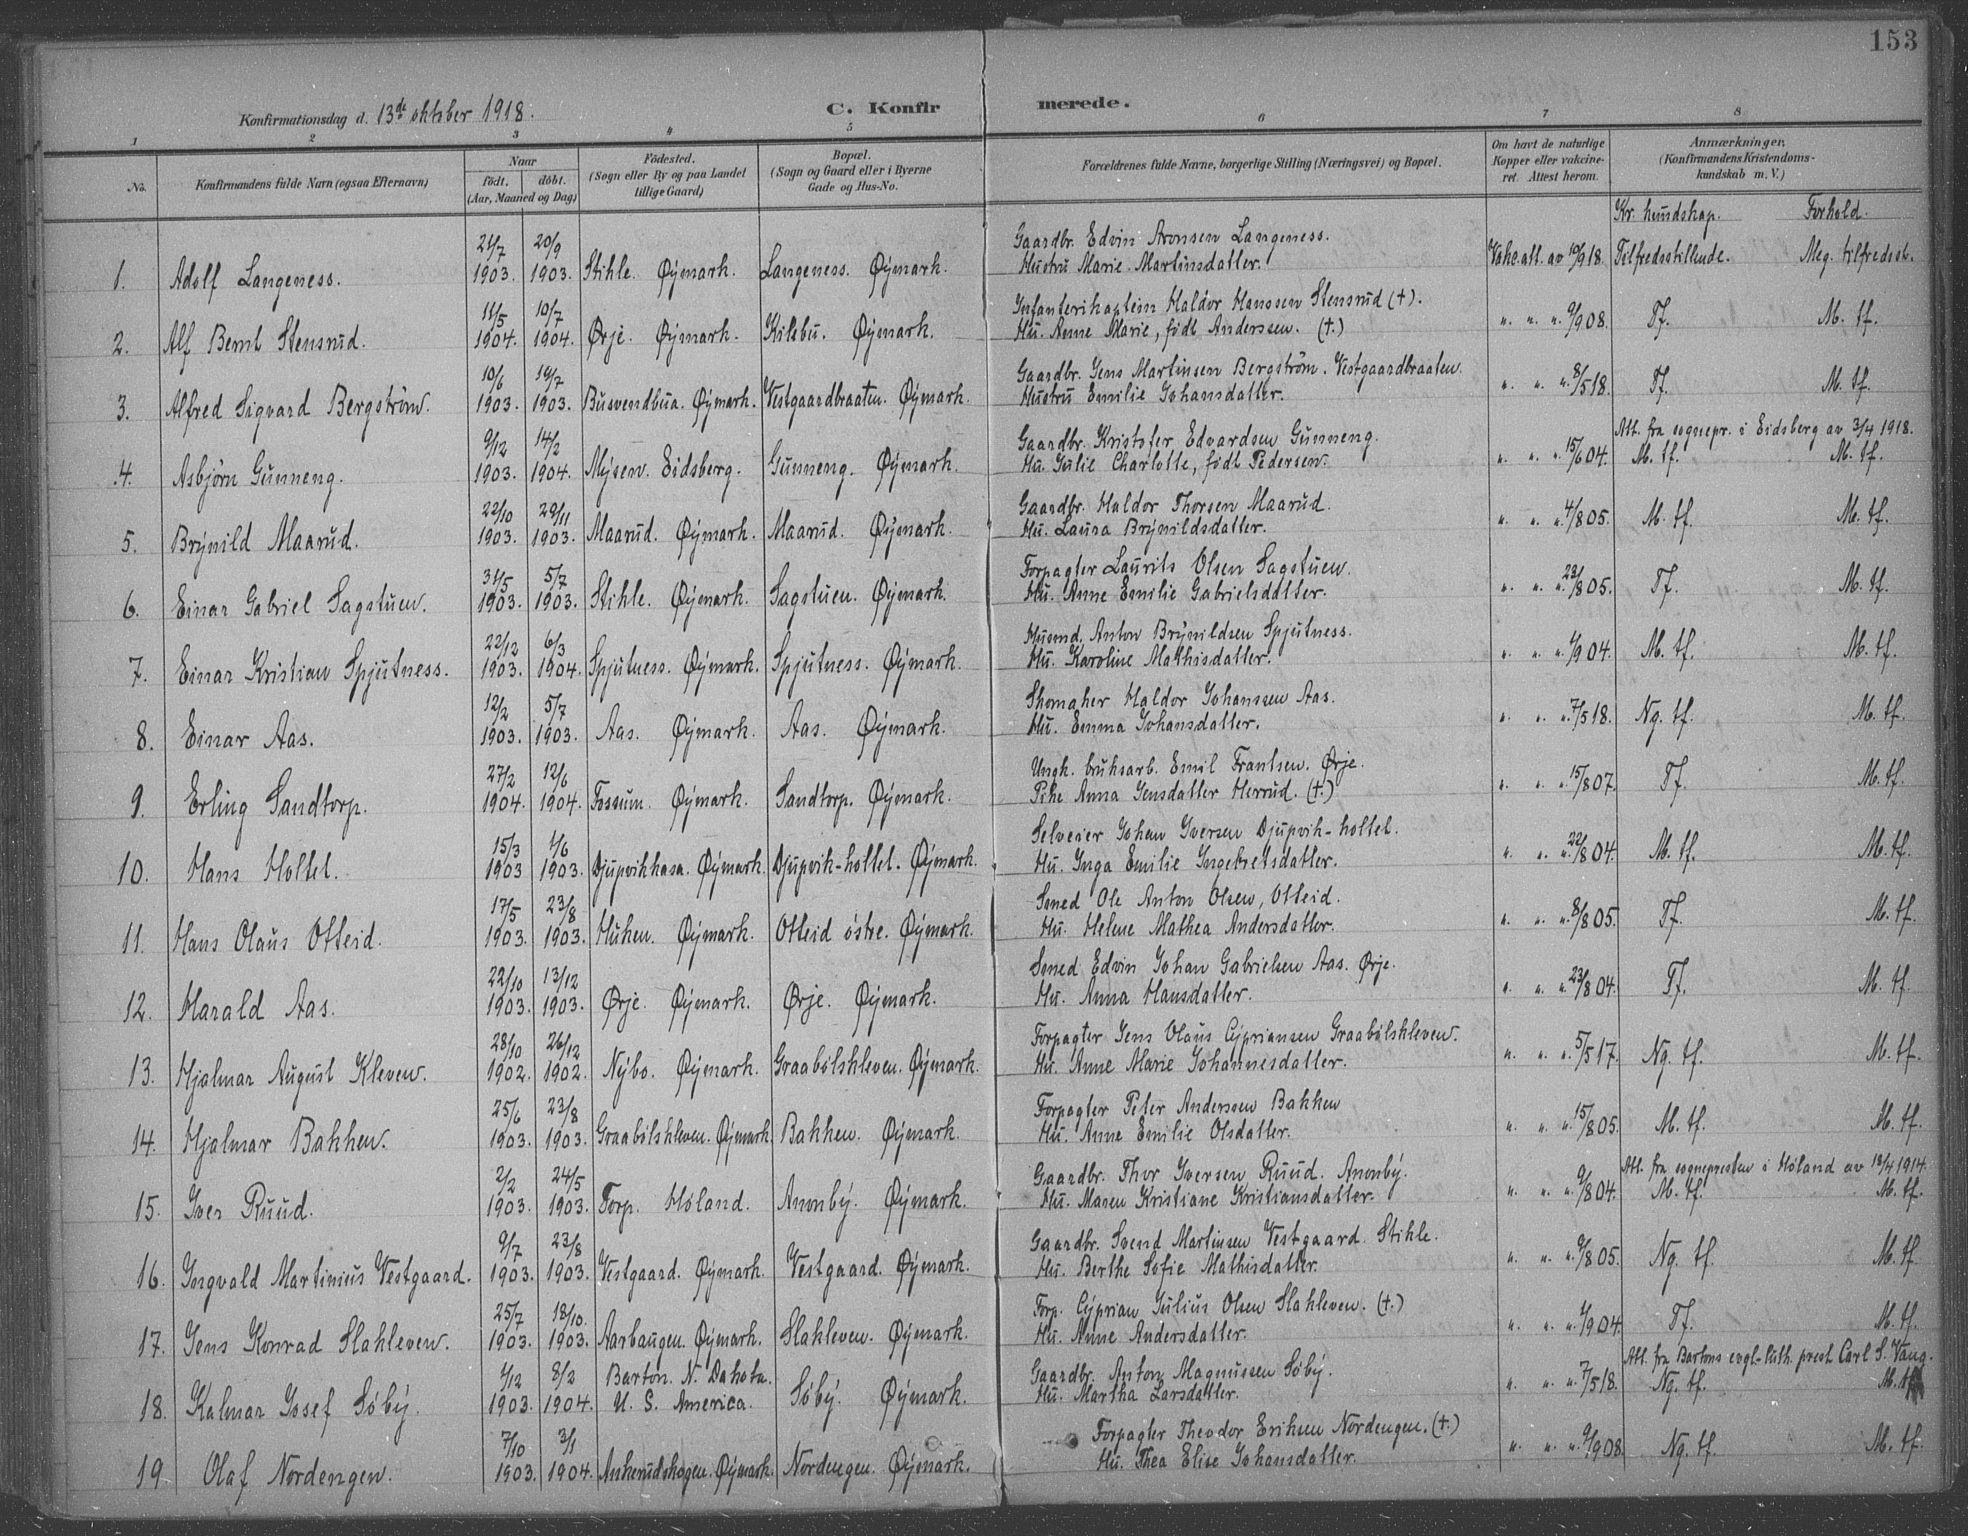 153
Konfirmationsdag d. 13de oktober 1918.
C. Konfirmerede.
1 2 3 4 5 6 7 8
No.
Konfirmandens fulde Navn (ogsaa Efternavn)
Naar
födt. döbt.
(Aar, Maaned og Dag)
Födested.
(Sogn eller By og paa Landet
tillige Gaard)
Bopæl.
(Sogn og Gaard eller i Byerne
Gade og Hus-No.
Forældrenes fulde Navne, borgerlige Stilling (Næringsvei) og Bopæl.
Om havt de naturlige
Kopper eller vakcine-
ret. Attest herom.
Anmærkninger.
(Konfirmandens Kristendoms-
kundskab m. V.)
Kr. kundskap. Forhold.
21/7 20/9 Gaardbr. Edvin Aronsen Langeness.
1. Adolf Langeness. 1903. 1903. Stikle. Øymark. Langeness. Øymark. Hustru Marie Martinsdatter. Vakc.att. av 10/9 18. Tilfredsstillende. Meg. tilfredsst.
11/5 10/7 Infanterikaptein Haldor Hanssen Stensrud (+).
2. Alf Bernt Stensrud. 1904. 1904. Ørje. Øymark. Kilebu. Øymark. Hu. Anne Marie, født Anderssen. (+) " " " 9/9 08. Tf. M. tf.
10/6 19/7 Gaardbr. Jens Martinsen Bergström. Vestgaardbraaten.
3. Alfred Sigvard Bergström. 1903. 1903. Busvendbua. Øymark. Vestgaardbraaten. Øymark. Hustru Emilie Johansdatter. " " " 8/5 18. Tf. M. tf.
9/12 14/2 Gaardbr. Kristofer Edvardsen Gunneng. Att. fra sognepr. i Eidsberg av 3/4 1918.
4. Asbjørn Gunneng. 1903. 1904. Mysen. Eidsberg. Gunneng. Øymark. Hu. Julie Charlotte, født Pedersen. " " " 15/6 04. M. tf. M. tf.
22/10 29/11 Gaardbr. Haldor Thorsen Maarud.
5. Brynild Maarud. 1903. 1903. Maarud. Øymark. Maarud. Øymark. Hu. Laura Brynildsdatter. " " " 4/8 05. M. tf. M. tf.
31/5 5/7 Forpagter Laurits Olsen Sagstuen.
6. Einar Gabriel Sagstuen. 1903. 1903. Stikle. Øymark. Sagstuen. Øymark. Hu. Anne Emilie Gabrielsdatter. " " " 23/8 05. Tf. M. tf.
22/12 6/3 Husmd. Anton Brynildsen Spjutness.
7. Einar Kristian Spjutness. 1903. 1904. Spjutness. Øymark. Spjutness. Øymark. Hu. Karoline Mathisdatter. " " " 1/9 04. M. tf. M. tf.
12/2 5/7 Skomaker Haldor Johanssen Aas.
8. Einar Aas. 1903. 1903. Aas. Øymark. Aas. Øymark. Hu. Emma Johansdatter. " " " 7/5 18. Ng. tf. M. tf.
27/2 12/6 Ungk. bruksarb. Emil Frantsen. Ørje.
9. Erling Sandtorp. 1904. 1904. Fossum. Øymark. Sandtorp. Øymark. Pike Anna Jensdatter Herrud. (+) " " " 15/8 07. Tf. M. tf.
15/3 1/6 Selveier Johan Iversen Djupvik-holtet.
10. Hans Holtet. 1903 1903. Djupvikkasa. Øymark. Djupvik-holtet. Øymark. Hu. Inga Emilie Ingebretsdatter. " " " 22/8 04. M. tf. M. tf.
17/5 23/8 Smed Ole Anton Olsen, Otteid.
11. Hans Olaus Otteid. 1903. 1903. Huken. Øymark. Otteid østre. Øymark. Hu. Helene Mathea Andersdatter. " " " 8/8 05. Tf. M. tf.
22/10 13/12 Smed Edvin Johan Gabrielsen Aas. Ørje.
12. Harald Aas. 1903. 1903. Ørje. Øymark. Ørje. Øymark. Hu. Anna Hansdatter. " " " 23/8 04. Tf. M. tf.
28/10 26/12 Forpagter Jens Olaus Cypriansen Graabølskleven.
13. Hjalmar August Kleven. 1902. 1902. Nybo. Øymark. Graabølskleven. Øymark. Hu. Anne Marie Johannesdatter. " " " 5/5 17. Ng. tf. M. tf.
25/6 23/8 Forpagter Peter Anderssen Bakken
14. Hjalmar Bakken. 1903. 1903. Graabølskleven. Øymark. Bakken. Øymark. Hu. Anne Emilie Olsdatter. " " " 15/8 05. M. tf. M. tf.
2/2 24/5 Gaardbr. Thor Iversen Ruud. Anonby. Att. fra sognepresten i Høland av 18/4 1914.
15. Iver Ruud. 1903. 1903. Torp. Høland. Anonby. Øymark. Hu. Maren Kristiane Kristiansdatter. " " " 9/8 04. M. tf. M. tf.
9/7 23/8 Gaardbr. Svend Martinsen Vestgaard. Stikle.
16. Ingvald Martinius Vestgaard. 1903. 1903. Vestgaard. Øymark. Vestgaard. Øymark. Hu. Berthe Sofie Mathisdatter. " " " 9/8 05. Ng. tf. M. tf.
25/7 18/10. Forp. Cyprian Julius Olsen Slakleven. (+.)
17. Jens Konrad Slakleven. 1903. 1903. Aarbaugen. Øymark. Slakleven. Øymark. Hu. Anne Andersdatter. " " " 1/9 04. Tf. M. tf.
4/12 8/2 Barton. N. Dakota. Gaardbr. Anton Magnussen Søby. Att. fra Bartons evgl-luth. prest Carl S. Vang.
18. Kalmar Josef Søby. 1903. 1904. U. S. America. Søby. Øymark. Hu. Martha Larsdatter. " " " 7/5 18. Ng. tf. M. tf.
7/10 3/1 Forpagter Theodor Eriksen Nordengen. (+.)
19. Olaf Nordengen. 1903. 1904. Ankerudskogen. Øymark. Nordengen. Øymark. Hu. Thea Elise Johansdatter. " " " 9/9 08. Ng. tf. M. tf.